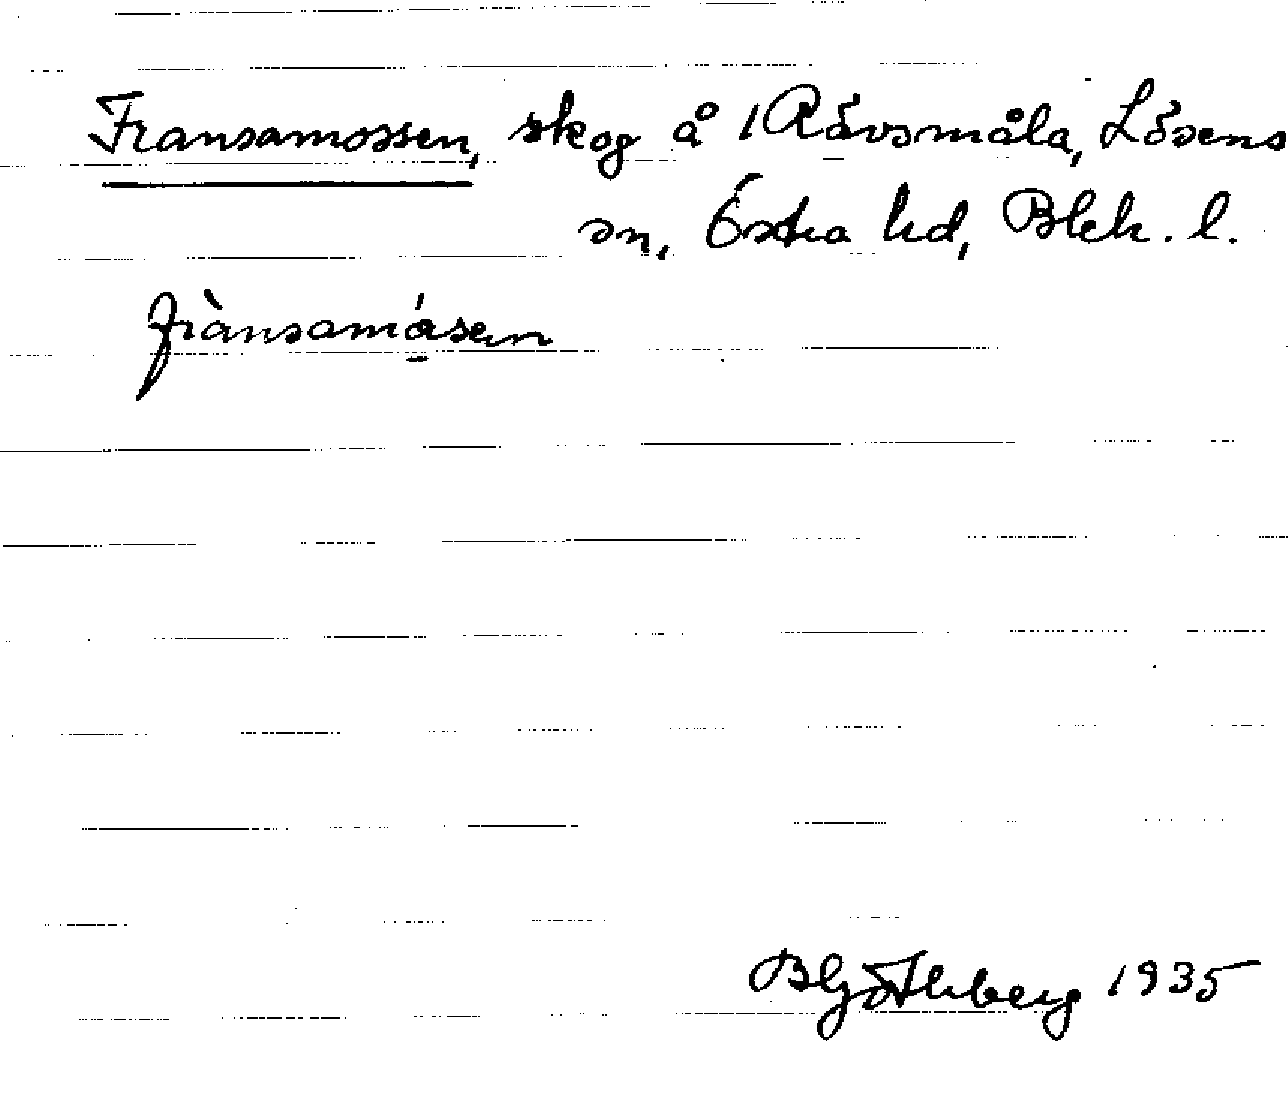 Fransamossen, skog å 1 Rävsmåla, Lösens
sn, Östra hd, Blek. l.
frànsamása̱n
BGöthberg 1935